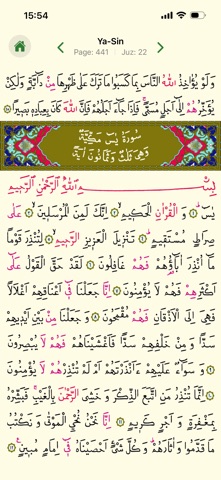 15:54
Ya-Sin
Page: 441 Juz: 22
وَلَوْ يُؤَاخِذُ اللّٰهُ النَّاسَ بِمَا كَسَبُوا مَا تَرَكَ عَلٰى ظَهْرِهَا مِنْ دَٓابَّةٍ وَلٰكِنْ
يُؤَخِّرُهُمْ اِلٰٓى اَجَلٍ مُسَمًّىۚ فَاِذَا جَٓاءَ اَجَلُهُمْ فَاِنَّ اللّٰهَ كَانَ بِعِبَادِه۪ بَص۪يرًا
سُورَةُ يٰسٓ مَكِّيَّةٌ
وَهِيَ ثَلٰثٌ وَثَمَانُونَ اٰيَةً
بِسْمِ اللّٰهِ الرَّحْمٰنِ الرَّح۪يمِ
يٰسٓ ۚ ﴿١﴾ وَالْقُرْاٰنِ الْحَك۪يمِۙ ﴿٢﴾ اِنَّكَ لَمِنَ الْمُرْسَل۪ينَۙ ﴿٣﴾ عَلٰى
صِرَاطٍ مُسْتَق۪يمٍۜ ﴿٤﴾ تَنْز۪يلَ الْعَز۪يزِ الرَّح۪يمِۙ ﴿٥﴾ لِتُنْذِرَ قَوْمًا
مَٓا اُنْذِرَ اٰبَٓاؤُهُمْ فَهُمْ غَافِلُونَ ﴿٦﴾ لَقَدْ حَقَّ الْقَوْلُ عَلٰٓى
اَكْثَرِهِمْ فَهُمْ لَا يُؤْمِنُونَ ﴿٧﴾ اِنَّا جَعَلْنَا ف۪ٓي اَعْنَاقِهِمْ اَغْلَالًا
فَهِيَ اِلَى الْاَذْقَانِ فَهُمْ مُقْمَحُونَ ﴿٨﴾ وَجَعَلْنَا مِنْ بَيْنِ اَيْد۪يهِمْ
سَدًّا وَمِنْ خَلْفِهِمْ سَدًّا فَاَغْشَيْنَاهُمْ فَهُمْ لَا يُبْصِرُونَ
﴿٩﴾ وَسَوَٓاءٌ عَلَيْهِمْ ءَاَنْذَرْتَهُمْ اَمْ لَمْ تُنْذِرْهُمْ لَا يُؤْمِنُونَ
﴿١٠﴾ اِنَّمَا تُنْذِرُ مَنِ اتَّبَعَ الذِّكْرَ وَخَشِيَ الرَّحْمٰنَ بِالْغَيْبِۚ فَبَشِّرْهُ
بِمَغْفِرَةٍ وَاَجْرٍ كَر۪يمٍ ﴿١١﴾ اِنَّا نَحْنُ نُحْيِ الْمَوْتٰى وَنَكْتُبُ
مَا قَدَّمُوا وَاٰثَارَهُمْۜ وَكُلَّ شَيْءٍ اَحْصَيْنَاهُ ف۪ٓي اِمَامٍ مُب۪ينٍ۟ ﴿١٢﴾